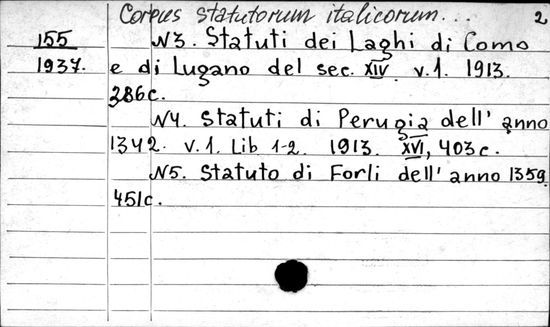 Corpus statutorum italicorum... 2
155
1937.
N3. Statuti dei Laghi di Como
e di Lugano del sec. XIV v.1. 1913.
286c.
N4. Statuti di Perugia dell' anno
1342. v.1. Lib 1-2. 1913. XVI, 403c.
N5. Statuto di Forli dell' anno 1359
451c.